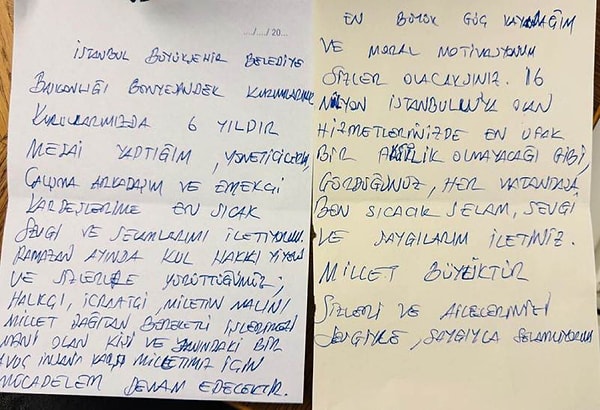 ..../..../ 20...
İSTANBUL BÜYÜKŞEHİR BELEDİYE
BAŞKANLIĞI BÜNYESİNDEKİ KURUMLARIMIZ
KURULLARIMIZDA 6 YILDIR
MESAİ YAPTIĞIM, YÖNETİCİLERİM,
ÇALIŞMA ARKADAŞIM VE EMEKÇİ
KARDEŞLERİME EN SICAK
SEVGİ VE SELAMLARIMI İLETİYORUM.
RAMAZAN AYINDA KUL HAKKI YİYEN
VE SİZLERLE YÜRÜTTÜĞÜMÜZ,
HALKÇI, İCRAATÇI, MİLLETİN MALINI
MİLLET DAĞITAN BEREKETLİ İŞLERİMİZİ
MANİ OLAN KİŞİ VE YANINDAKİ BİR
AVUÇ İNSANA KARŞI MİLLETİMİZ İÇİN
MÜCADELEM DEVAM EDECEKTİR.
EN BÜYÜK GÜÇ KAYNAĞIM
VE MORAL MOTİVASYONUM
SİZLER OLACAKSINIZ. 16
MİLYON İSTANBULLUYA OLAN
HİZMETLERİNİZDE EN UFAK
BİR AKSİLİK OLMAYACAĞI GİBİ,
GÖRDÜĞÜNÜZ, HER VATANDAŞA
BEN SICACIK SELAM, SEVGİ
VE SAYGILARIM İLETİNİZ.
MİLLET BÜYÜKTÜR
SİZLERİ VE AİLELERİNİZİ
SEVGİYLE, SAYGIYLA SELAMLIYORUM